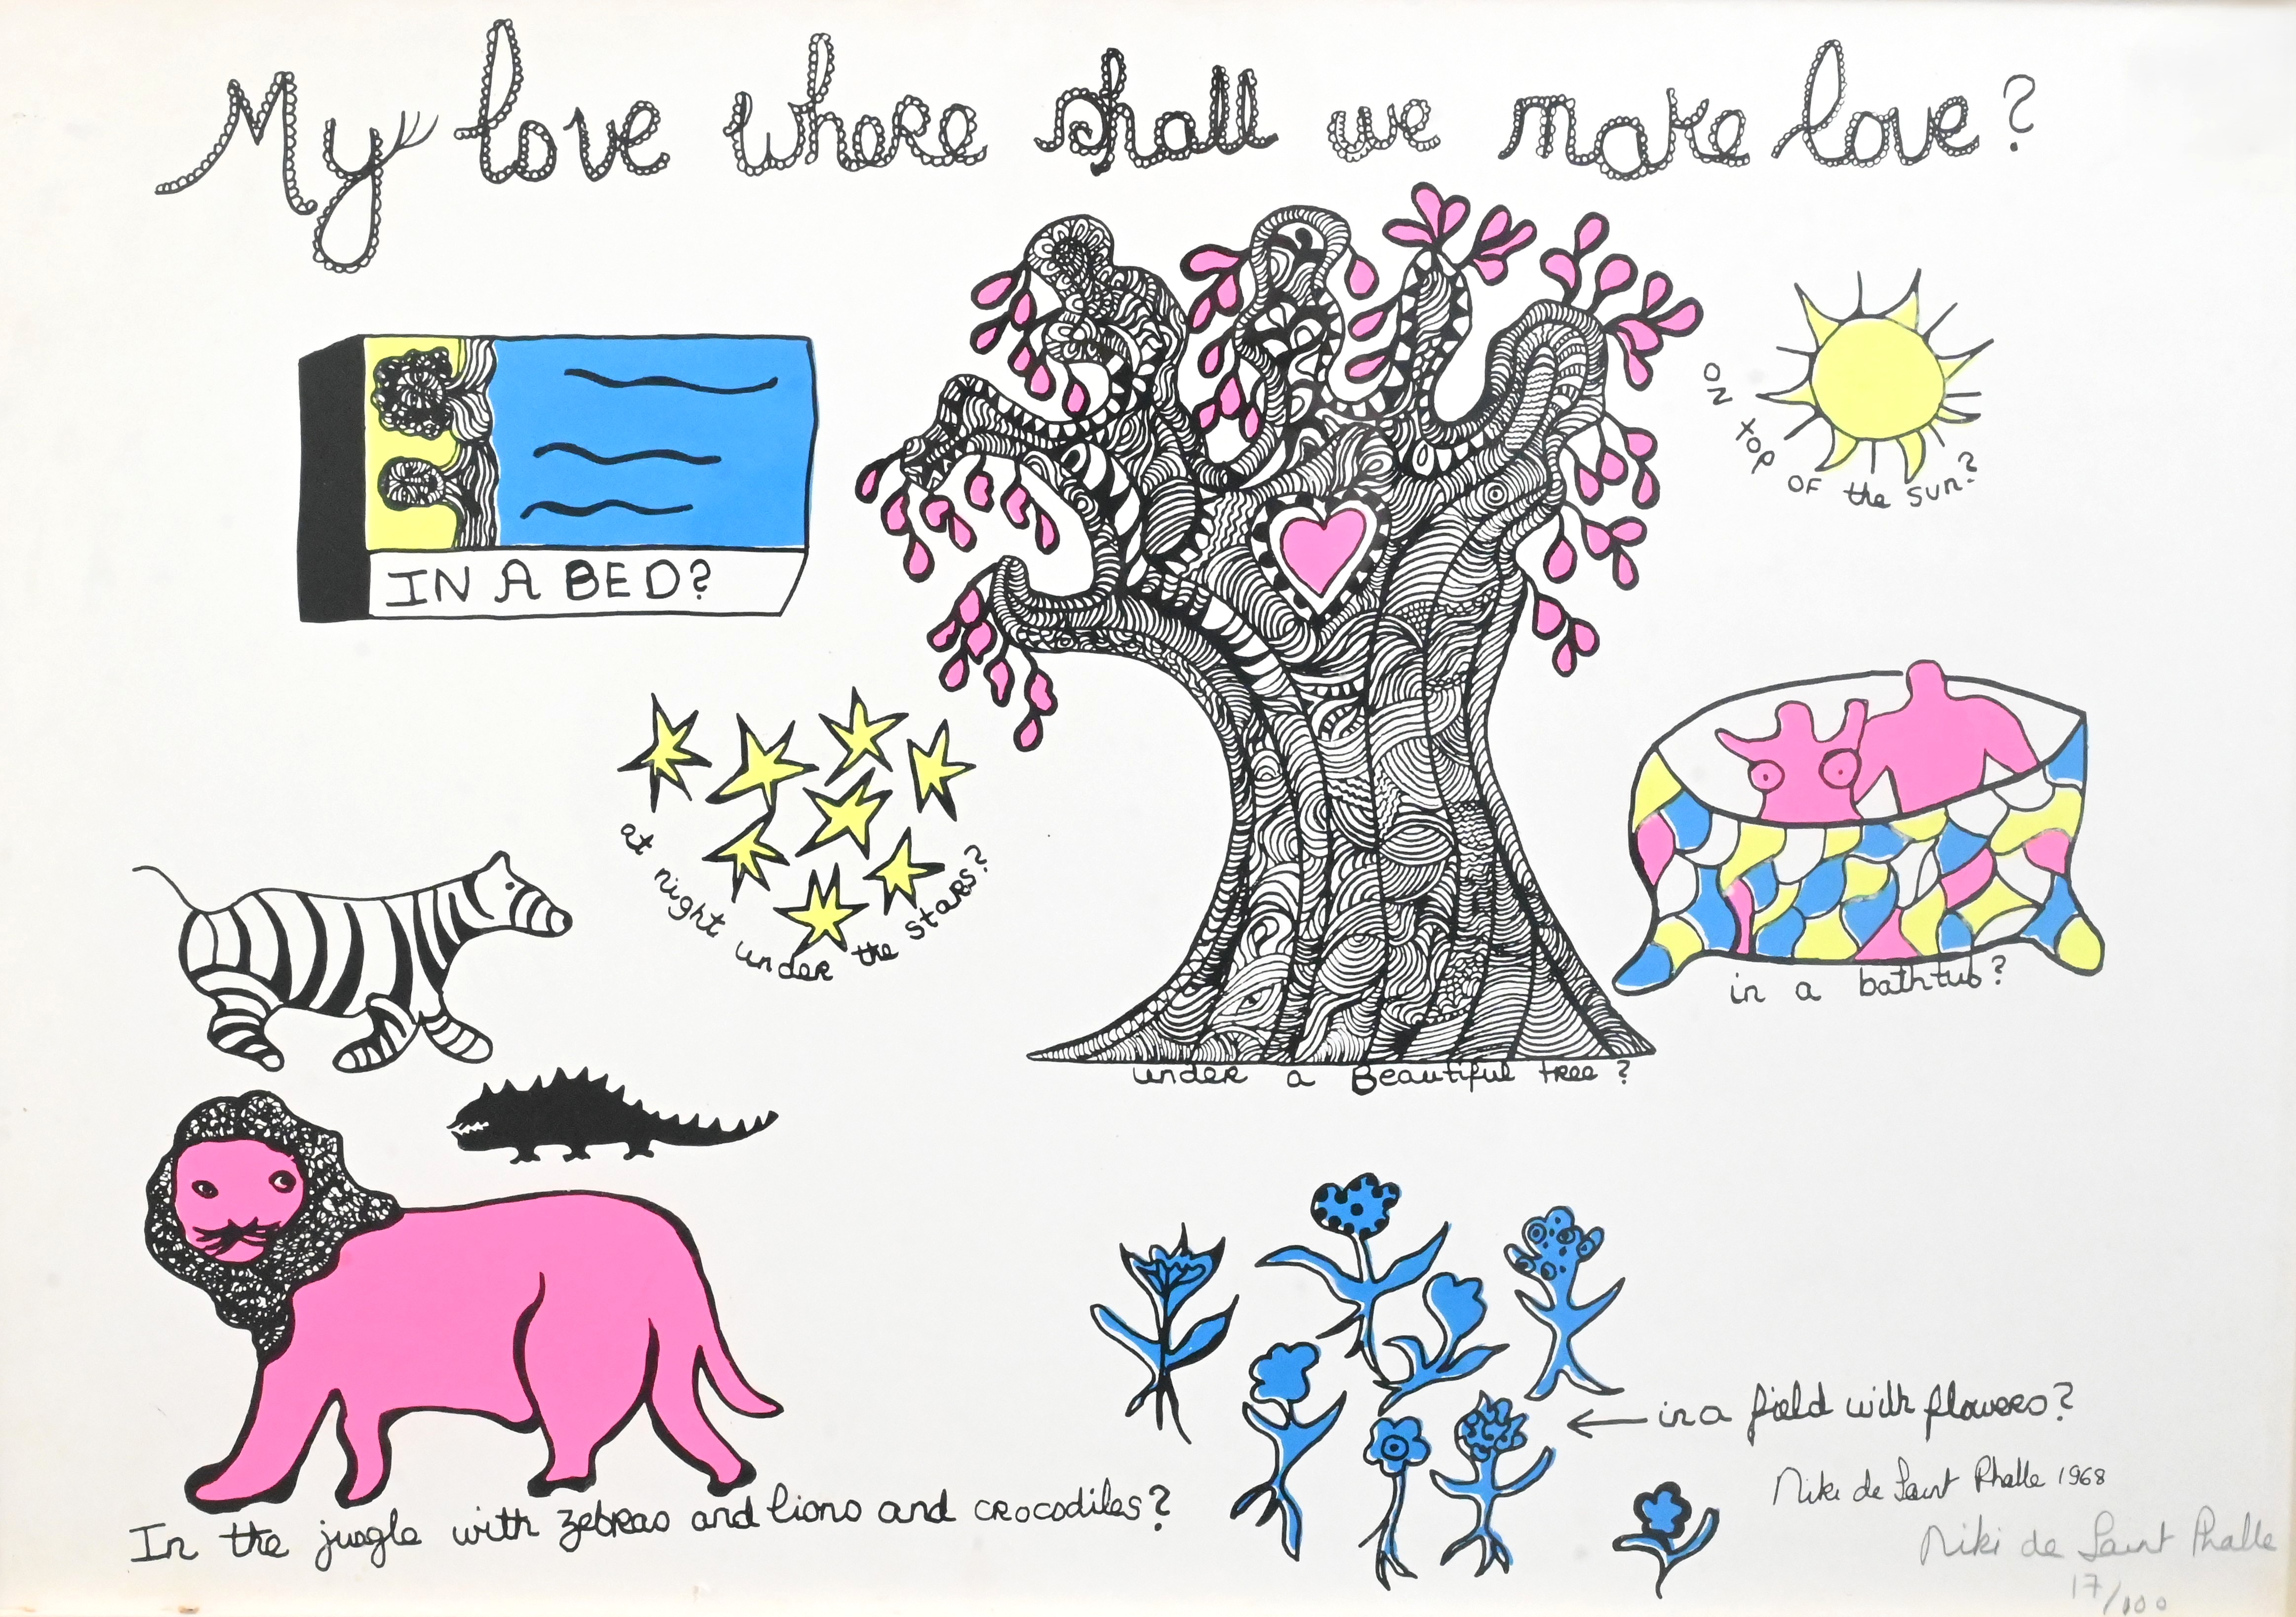 My love where shall we make love?
IN A BED?
ON top OF the sun?
at night under the stars?
in a bathtub?
under a Beautiful tree?
in a field with flowers?
Niki de Saint Phalle 1968
In the jugle with zebras and lions and crocodiles?
Niki de Saint Phalle
17/100